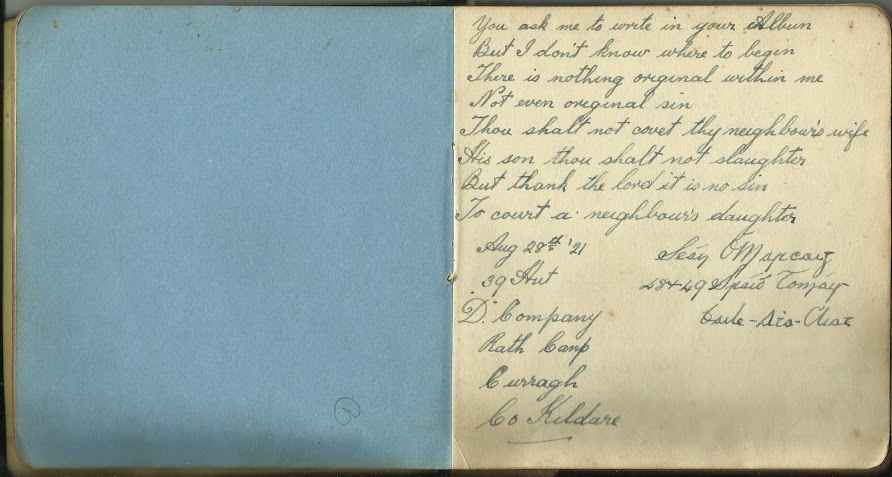 You ask me to write in your Album
But I don't know where to begin
There is nothing original within me
Not even original sin
Thou shalt not covet thy neighbour's wife
His son thou shalt not slaughter
But thank the lord it is no sin
To court a neighbour's daughter
Aug 28th '21
39 Hut
"D" Company
Rath Camp
Curragh
Co Kildare
Seán
48+49 Sráid
6